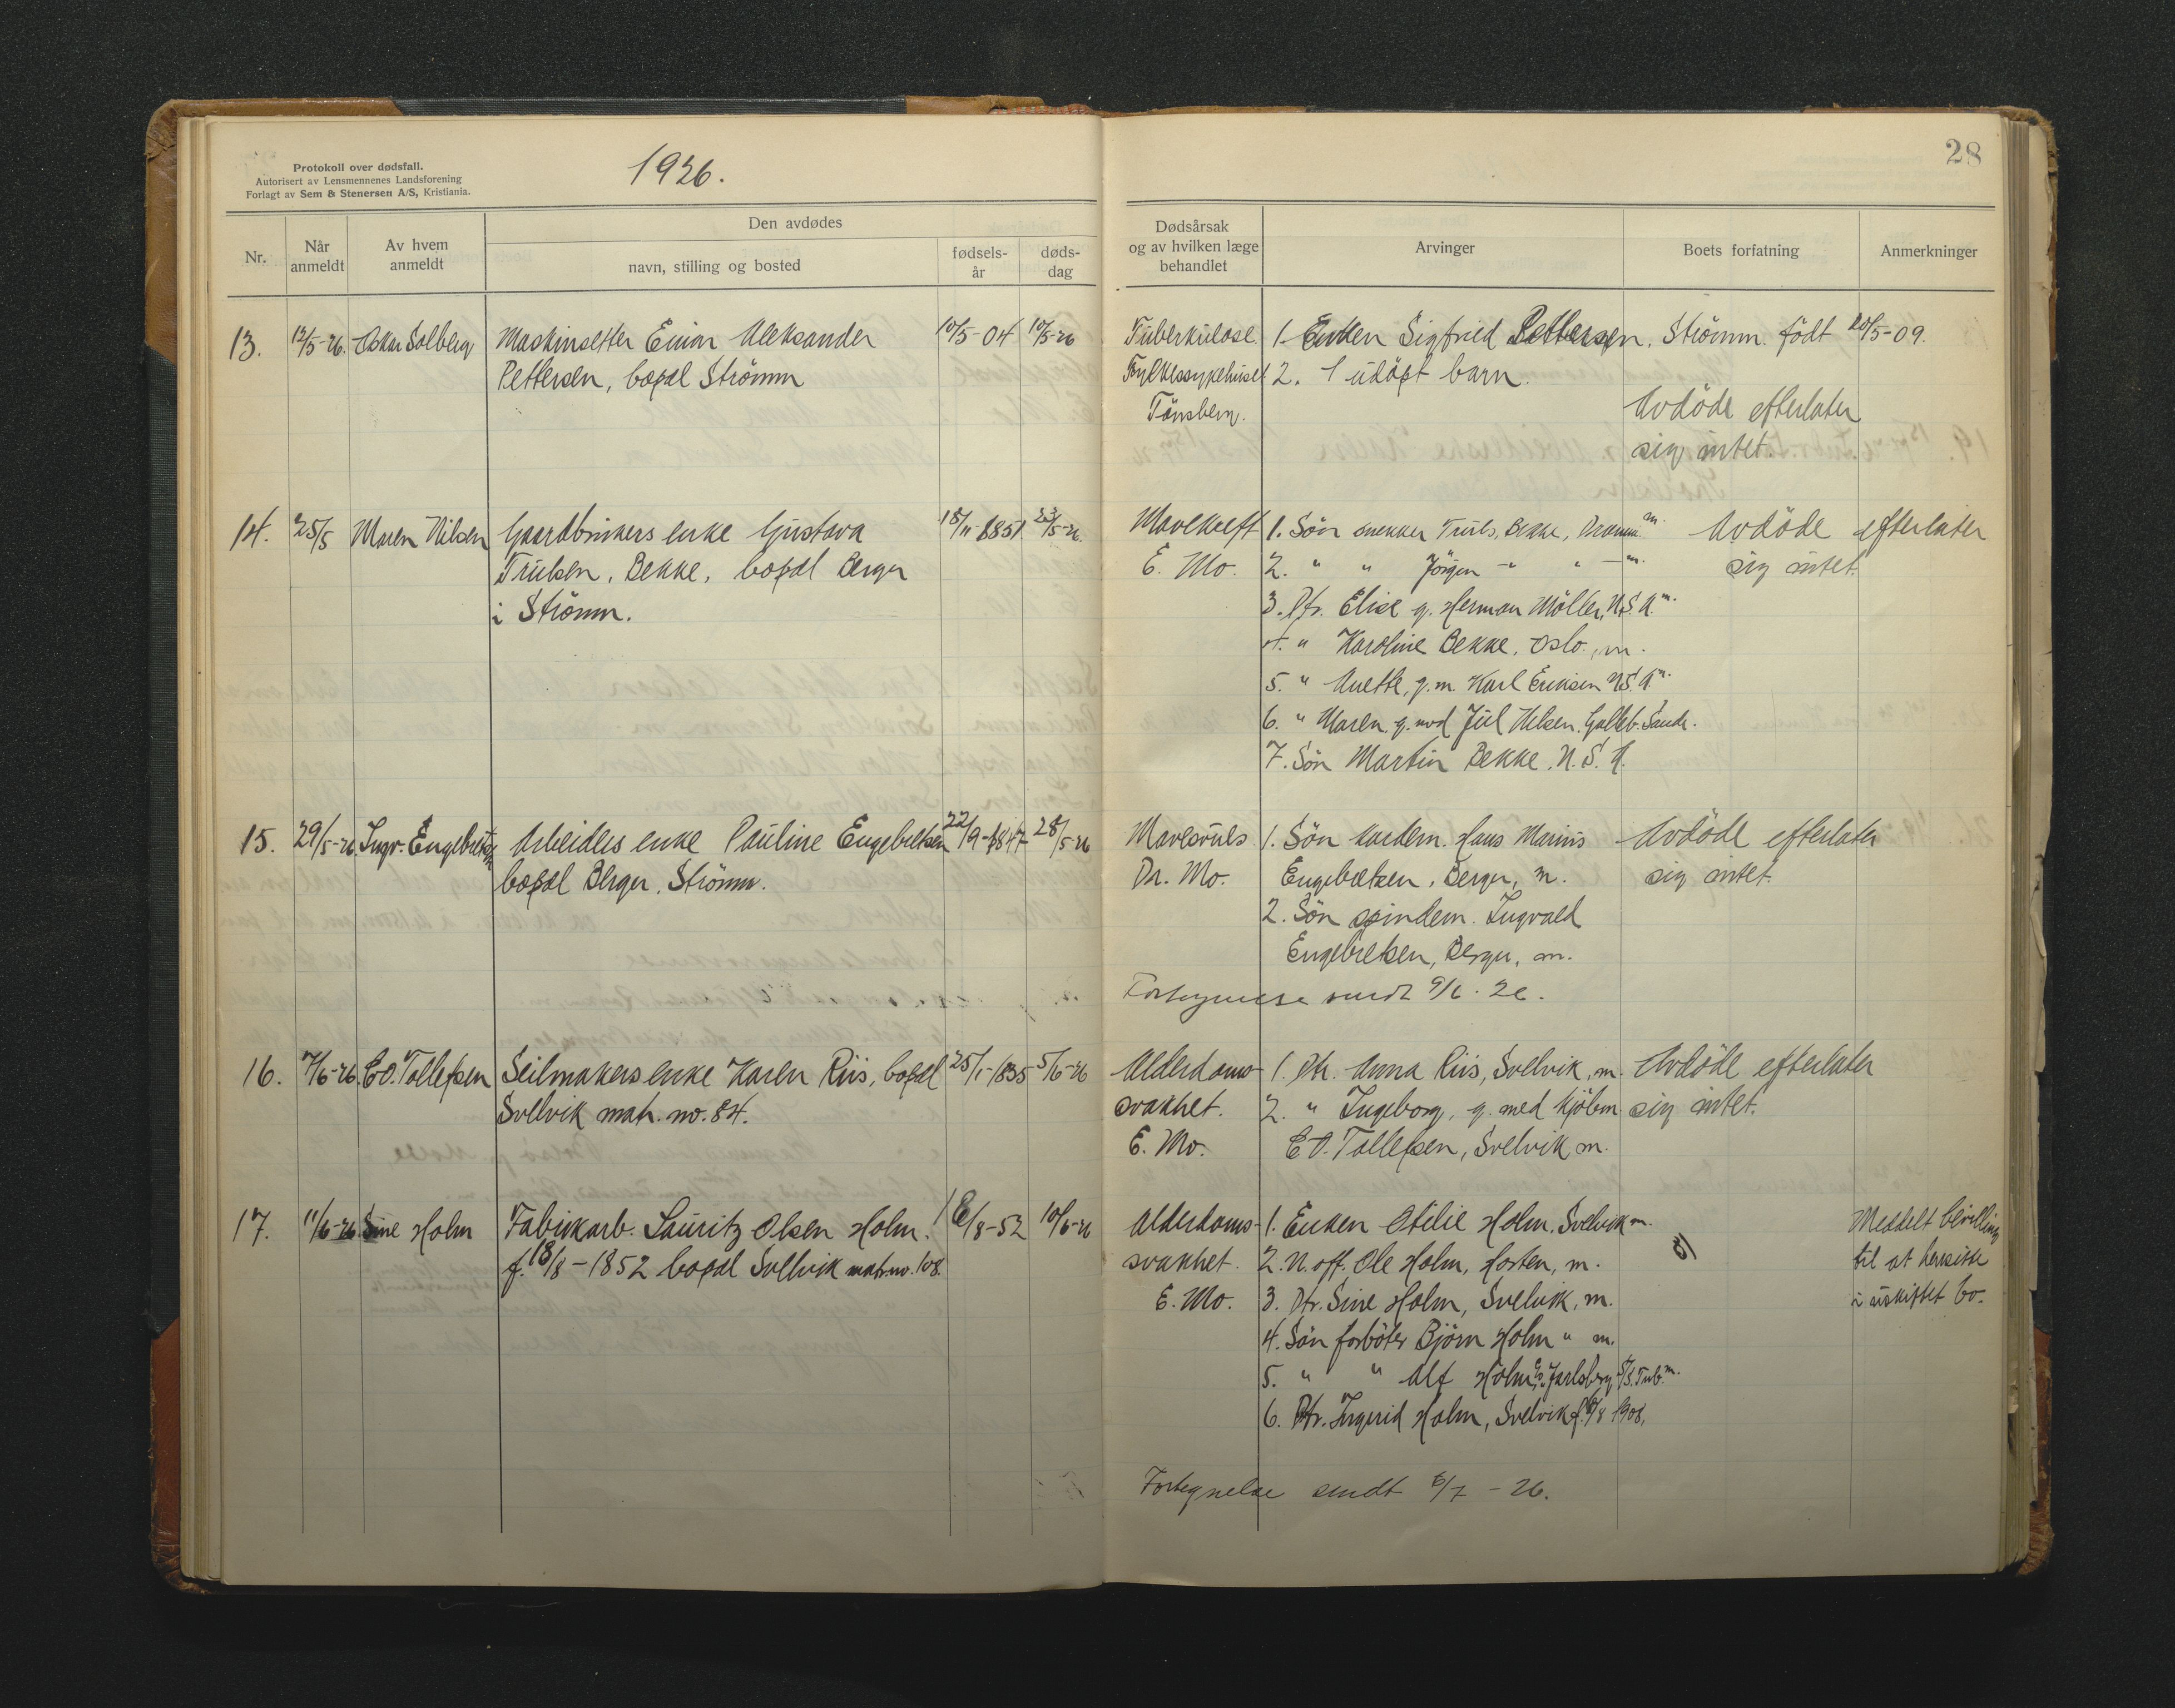 Protokoll over dødsfall.
Autorisert av Lensmennenes Landsforening
Forlagt av Sem & Stenersen A/S, Kristiania.
1926.
28
Nr.
Når anmeldt
Av hvem anmeldt
Den avdødes
navn, stilling og bosted
fødsels-år
døds-dag
Dødsårsak og av hvilken læge behandlet
Arvinger
Boets forfatning
Anmerkninger
13. 12/5-26. Oskar Solberg Maskinsetter Einar Aleksander 10/5-04 10/5-26
Pettersen, bopæl Strömm
Tuberkulose. 1. Enken Sigfried Pettersen, Strömm. födt 20/5-09.
Fylkessykehuset 2. 1 udöpt barn.
Tönsberg.
Avdöde efterlater
sig intet.
14. 25/5 Maren Nilsen Gaardbrukers enke Gustava 18/11-1851 23/5-26.
Trulsen, Bekke, bopæl Berger
i Strömm.
Mavekreft 1. Sön snekker Truls, Bekke, Dramm. m. Avdöde efterlater
E. Mo. 2. " " Jörgen - " " - m. sig intet.
3. Dtr. Elise g. Herman Möller, N.S.A. m.
4. " Karoline Bekke, Oslo, m.
5. " Anette, g. m. Karl Eriksen N.S.A. m.
6. " Maren g. med Jul Nilsen, Galleb. Sande.
7. Sön Martin Bekke, N.S.A.
15. 29/5-26. Ingv. Engebretsen Arbeiders enke Pauline Engebretsen 22/9-1847 28/5-26
bopæl Berger, Strömm.
Mavesvuls 1. Sön kardem. Hans Marius Avdöde efterlater
Dr. Mo. Engebretsen, Berger, m. sig intet.
2. Sön spindem. Ingvald
Engebretsen, Berger, m.
Fortegnelse sendt 9/6. 26.
16. 7/6-26. E.O. Tollefsen Seilmakers enke Karen Riis, bopæl 25/1-1835 5/6-26
Svelvik matr. no. 84.
Alderdoms- 1. Dtr. Anna Riis, Svelvik, m. Avdöde efterlater
svakhet. 2. " Ingeborg, g. med kjöbm. sig intet.
E. Mo. E.O. Tollefsen, Svelvik m.
17. 11/6-26 Sine Holm Fabrikarb. Lauritz Olsen Holm. 18/8-52 10/6-26
f. 18/8-1852 bopæl Svelvik matr. no. 108.
Alderdoms- 1. Enken Otilie Holm, Svelvik m. Meddelt bevilling
svakhet. 2. U. off. Ole Holm, Horten, m. til at hensitte
E. Mo. 3. Dtr. Sine Holm, Svelvik, m. i uskiftet bo.
4. Sön forböter Björn Holm " m.
5. " " Alf Holm, Jarlsberg m.
6. Dtr. Ingerid Holm, Svelvik f. /8 1908.
Fortegnelse sendt 6/7 - 26.